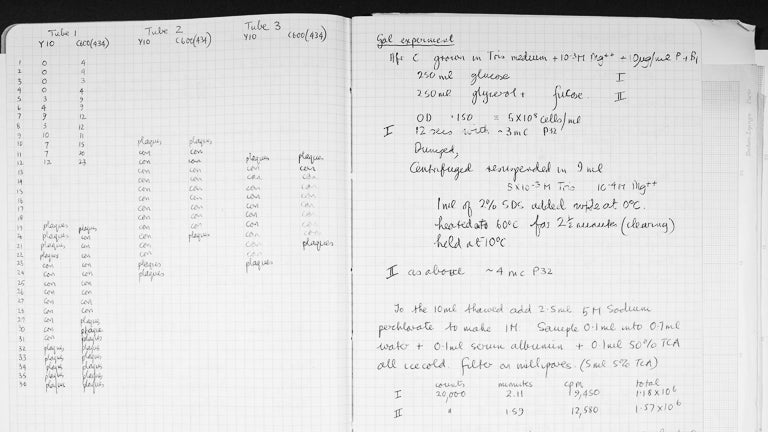 Tube 1 Tube 2 Tube 3
Y10 C600(434) Y10 C600(434) Y10 C600(434)
1 0 4
2 0 9
3 0 3
4 0 4
5 3 9
6 4 9
7 9 12
8 3 12
9 10 11
10 7 15 plaques plaques
11 7 con con
12 12 23 con con plaques plaques
13 con con con con
14 con con con con
15 con con con con
16 con con con con
17 con con con con
18 con con con con
19 plaques plaques con con con con
20 plaques con con plaques con con
21 plaques con con con plaques
22 plaques con con con
23 con con plaques plaques
24 con con plaques
25 con con
26 con con
27 con con
28 con con
29 con plaques
30 con plaque
31 con plaques
32 plaques plaques
33 plaques plaques
34 plaques plaques
35 plaques plaques
36 plaques plaques
Gal experiment
Hfr C grown in Tris medium + 10⁻³M Mg⁺⁺ + 10µg/ml P + B₁
250 ml glucose I
250 ml glycerol + fucose. II
OD .150 = 5×10⁸ cells/ml
I 12 secs with ~3mc P32
Dumped,
Centrifuged resuspended in 9 ml
5×10⁻³M Tris 10⁻⁴M Mg⁺⁺
1ml of 2% SDS added while at 0°C.
heated to 60°C for 2½ minutes (clearing)
held at 10°C
II as above ~4 mc P32
To the 10ml thawed add 2.5ml 5M Sodium
perchlorate to make 1M. Sample 0.1ml into 0.7ml
water + 0.1ml serum albumin + 0.1ml 50% TCA
all ice cold. filter on millipores. (5ml 5% TCA)
counts minutes cpm total
I 20,000 2.11 9,450 1.18×10⁶
II " 1.59 12,580 1.57×10⁶